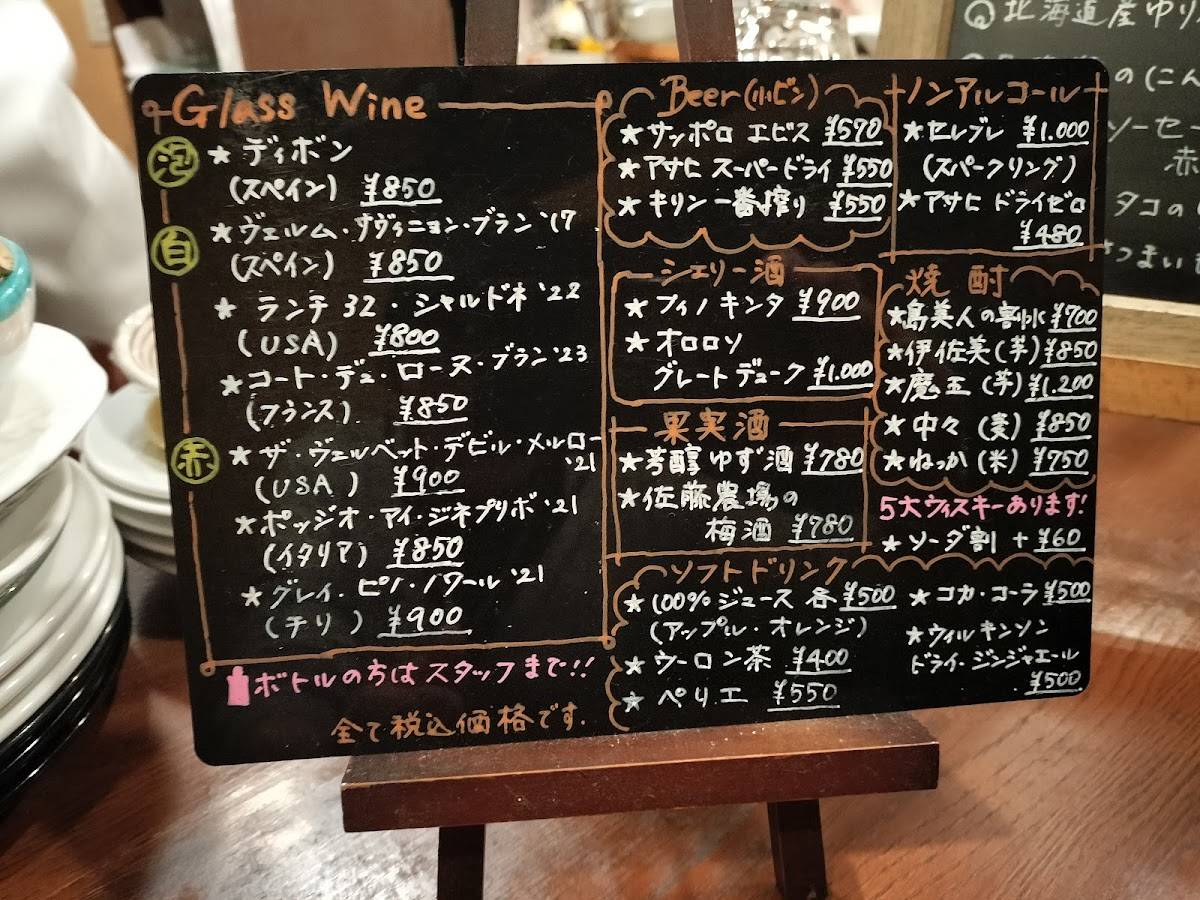 Glass Wine
泡 ★ ディボン
(スペイン) ¥850
白 ★ ヴェルム・サヴィニヨン・ブラン '17
(スペイン) ¥850
★ ランチ 32・シャルドネ '22
(USA) ¥800
★ コート・デュ・ローヌ・ブラン '23
(フランス) ¥850
赤 ★ ザ・ヴェルベット・デビル・メルロー
'21
(USA) ¥900
★ ポッジオ・アイ・ジネプリボ '21
(イタリア) ¥850
★ グレイ・ピノ・ノワール '21
(チリ) ¥900
ボトルの方はスタッフまで!!
全て税込価格です.
Beer(小ビン)
★ サッポロ エビス ¥570
★ アサヒ スーパードライ ¥550
★ キリン一番搾り ¥550
ノンアルコール
★ セレブレ ¥1.000
(スパークリング)
★ アサヒ ドライゼロ
¥480
シェリー酒
★ フィノ キンタ ¥900
★ オロロソ
グレートデューク ¥1.000
焼酎
★島美人の割水 ¥700
★伊佐美(芋) ¥850
★魔王(芋) ¥1.200
★中々(麦) ¥850
★ねっか(米) ¥750
果実酒
★芳醇ゆず酒 ¥780
★佐藤農場の
梅酒 ¥780
5大ウィスキーあります!
★ ソーダ割 + ¥60
ソフトドリンク
★ 100%ジュース 各¥500
(アップル・オレンジ)
★ ウーロン茶 ¥400
★ ペリエ ¥550
★ コカ・コーラ ¥500
★ウィルキンソン
ドライ・ジンジャエール
¥500
北海道産ゆり
の(こん
ソーセ
赤
タコの
さつまい